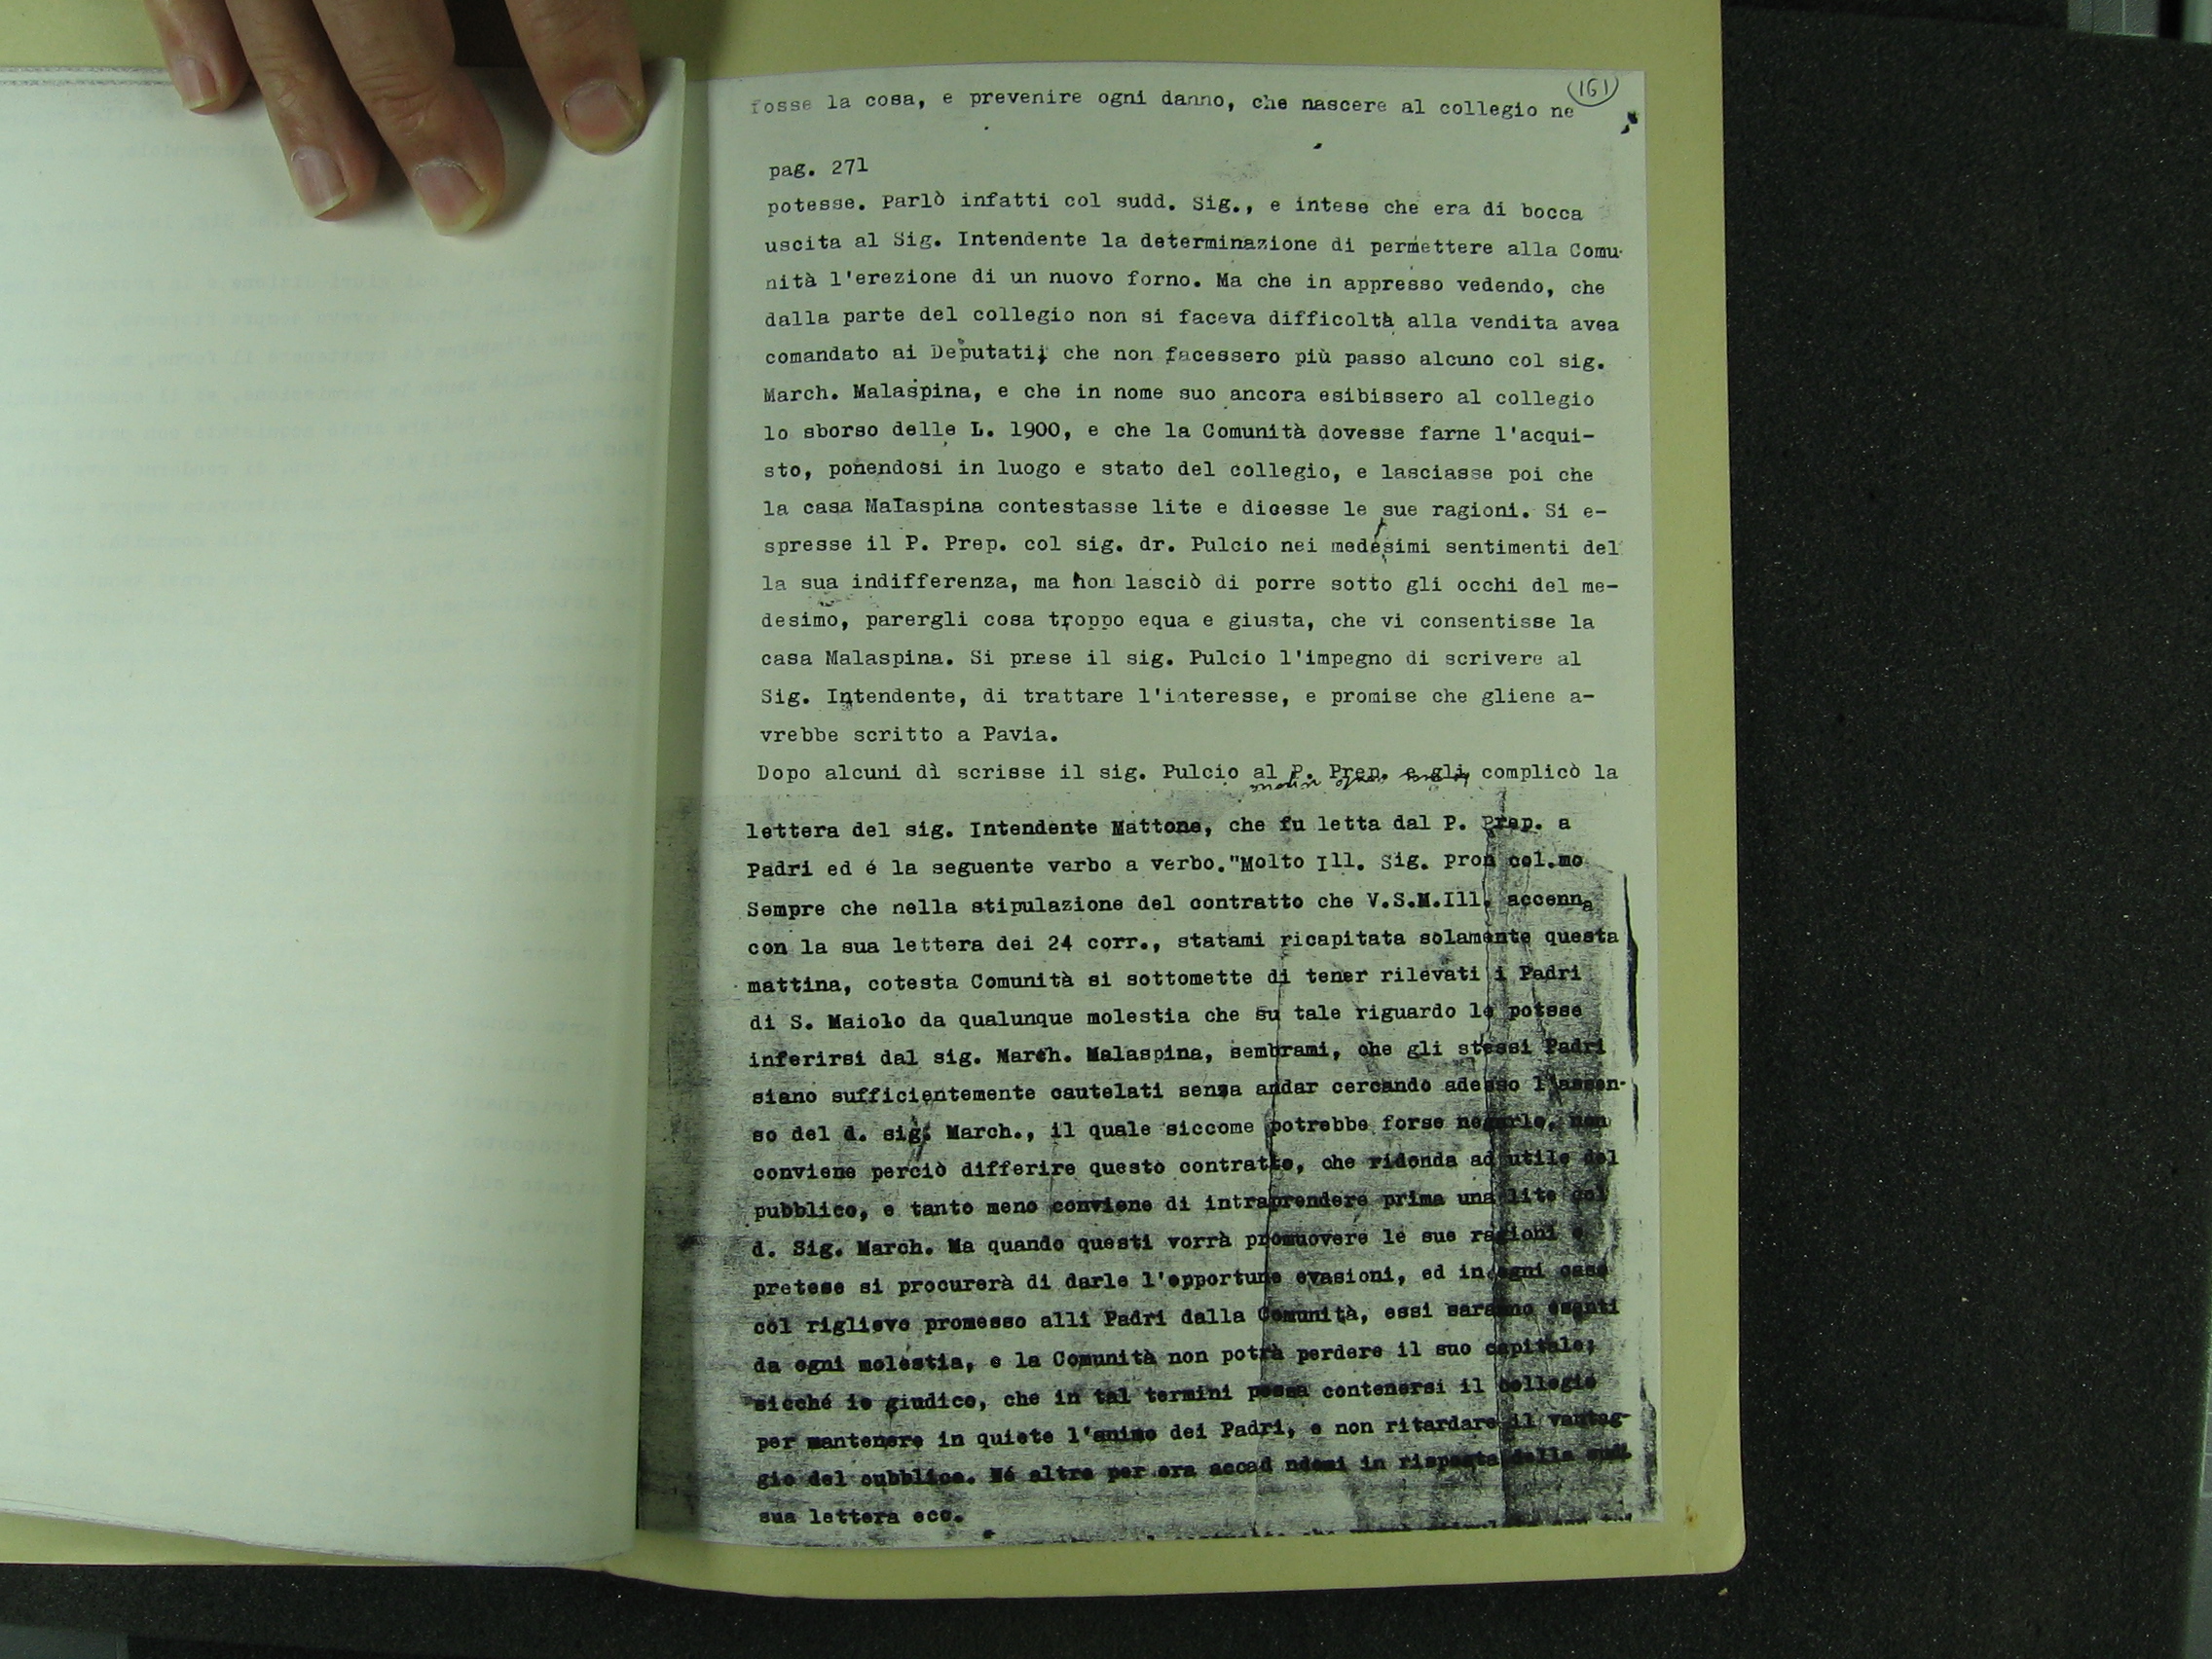 161
fosse la cosa, e prevenire ogni danno, che nascere al collegio ne
pag. 271
potesse. Parlò infatti col sudd. Sig., e intese che era di bocca
uscita al Sig. Intendente la determinazione di permettere alla Comu-
nità l'erezione di un nuovo forno. Ma che in appresso vedendo, che
dalla parte del collegio non si faceva difficoltà alla vendita avea
comandato ai Deputati, che non facessero più passo alcuno col sig.
March. Malaspina, e che in nome suo ancora esibissero al collegio
lo sborso delle L. 1900, e che la Comunità dovesse farne l'acqui-
sto, ponendosi in luogo e stato del collegio, e lasciasse poi che
la casa Malaspina contestasse lite e dicesse le sue ragioni. Si e-
spresse il P. Prep. col sig. dr. Pulcio nei medesimi sentimenti del
la sua indifferenza, ma non lasciò di porre sotto gli occhi del me-
desimo, parergli cosa troppo equa e giusta, che vi consentisse la
casa Malaspina. Si prese il sig. Pulcio l'impegno di scrivere al
Sig. Intendente, di trattare l'interesse, e promise che gliene a-
vrebbe scritto a Pavia.
Dopo alcuni dì scrisse il sig. Pulcio al P. Prep. e gli complicò la
lettera del sig. Intendente Mattone, che fu letta dal P. Prep. a
Padri ed é la seguente verbo a verbo."Molto Ill. Sig. Pron col.mo
Sempre che nella stipulazione del contratto che V.S.M.Ill. accenna
con la sua lettera dei 24 corr., statami ricapitata solamente questa
mattina, cotesta Comunità si sottomette di tener rilevati i Padri
di S. Maiolo da qualunque molestia che su tale riguardo le potese
inferirsi dal sig. March. Malaspina, sembrami, che gli stessi Padri
siano sufficientemente cautelati senza andar cercando adesso l'assen-
so del d. sig. March., il quale siccome potrebbe forse negarlo, non
conviene perciò differire questo contratto, che ridonda ad utile del
pubblico, e tanto meno conviene di intraprendere prima una lite col
d. Sig. March. Ma quando questi vorrà promuovere le sue ragioni e
pretese si procurerà di darle l'opportune evasioni, ed in ogni caso
col riglievo promesso alli Padri dalla Comunità, essi saranno esenti
da ogni molestia, e la Comunità non potrà perdere il suo capitale;
sicché io giudico, che in tal termini possa contenersi il collegio
per mantenere in quiete l'animo dei Padri, e non ritardare il vantag-
gio del oubblico. Né altro per ora accad ndomi in risposta della sud.
sua lettera ecc.